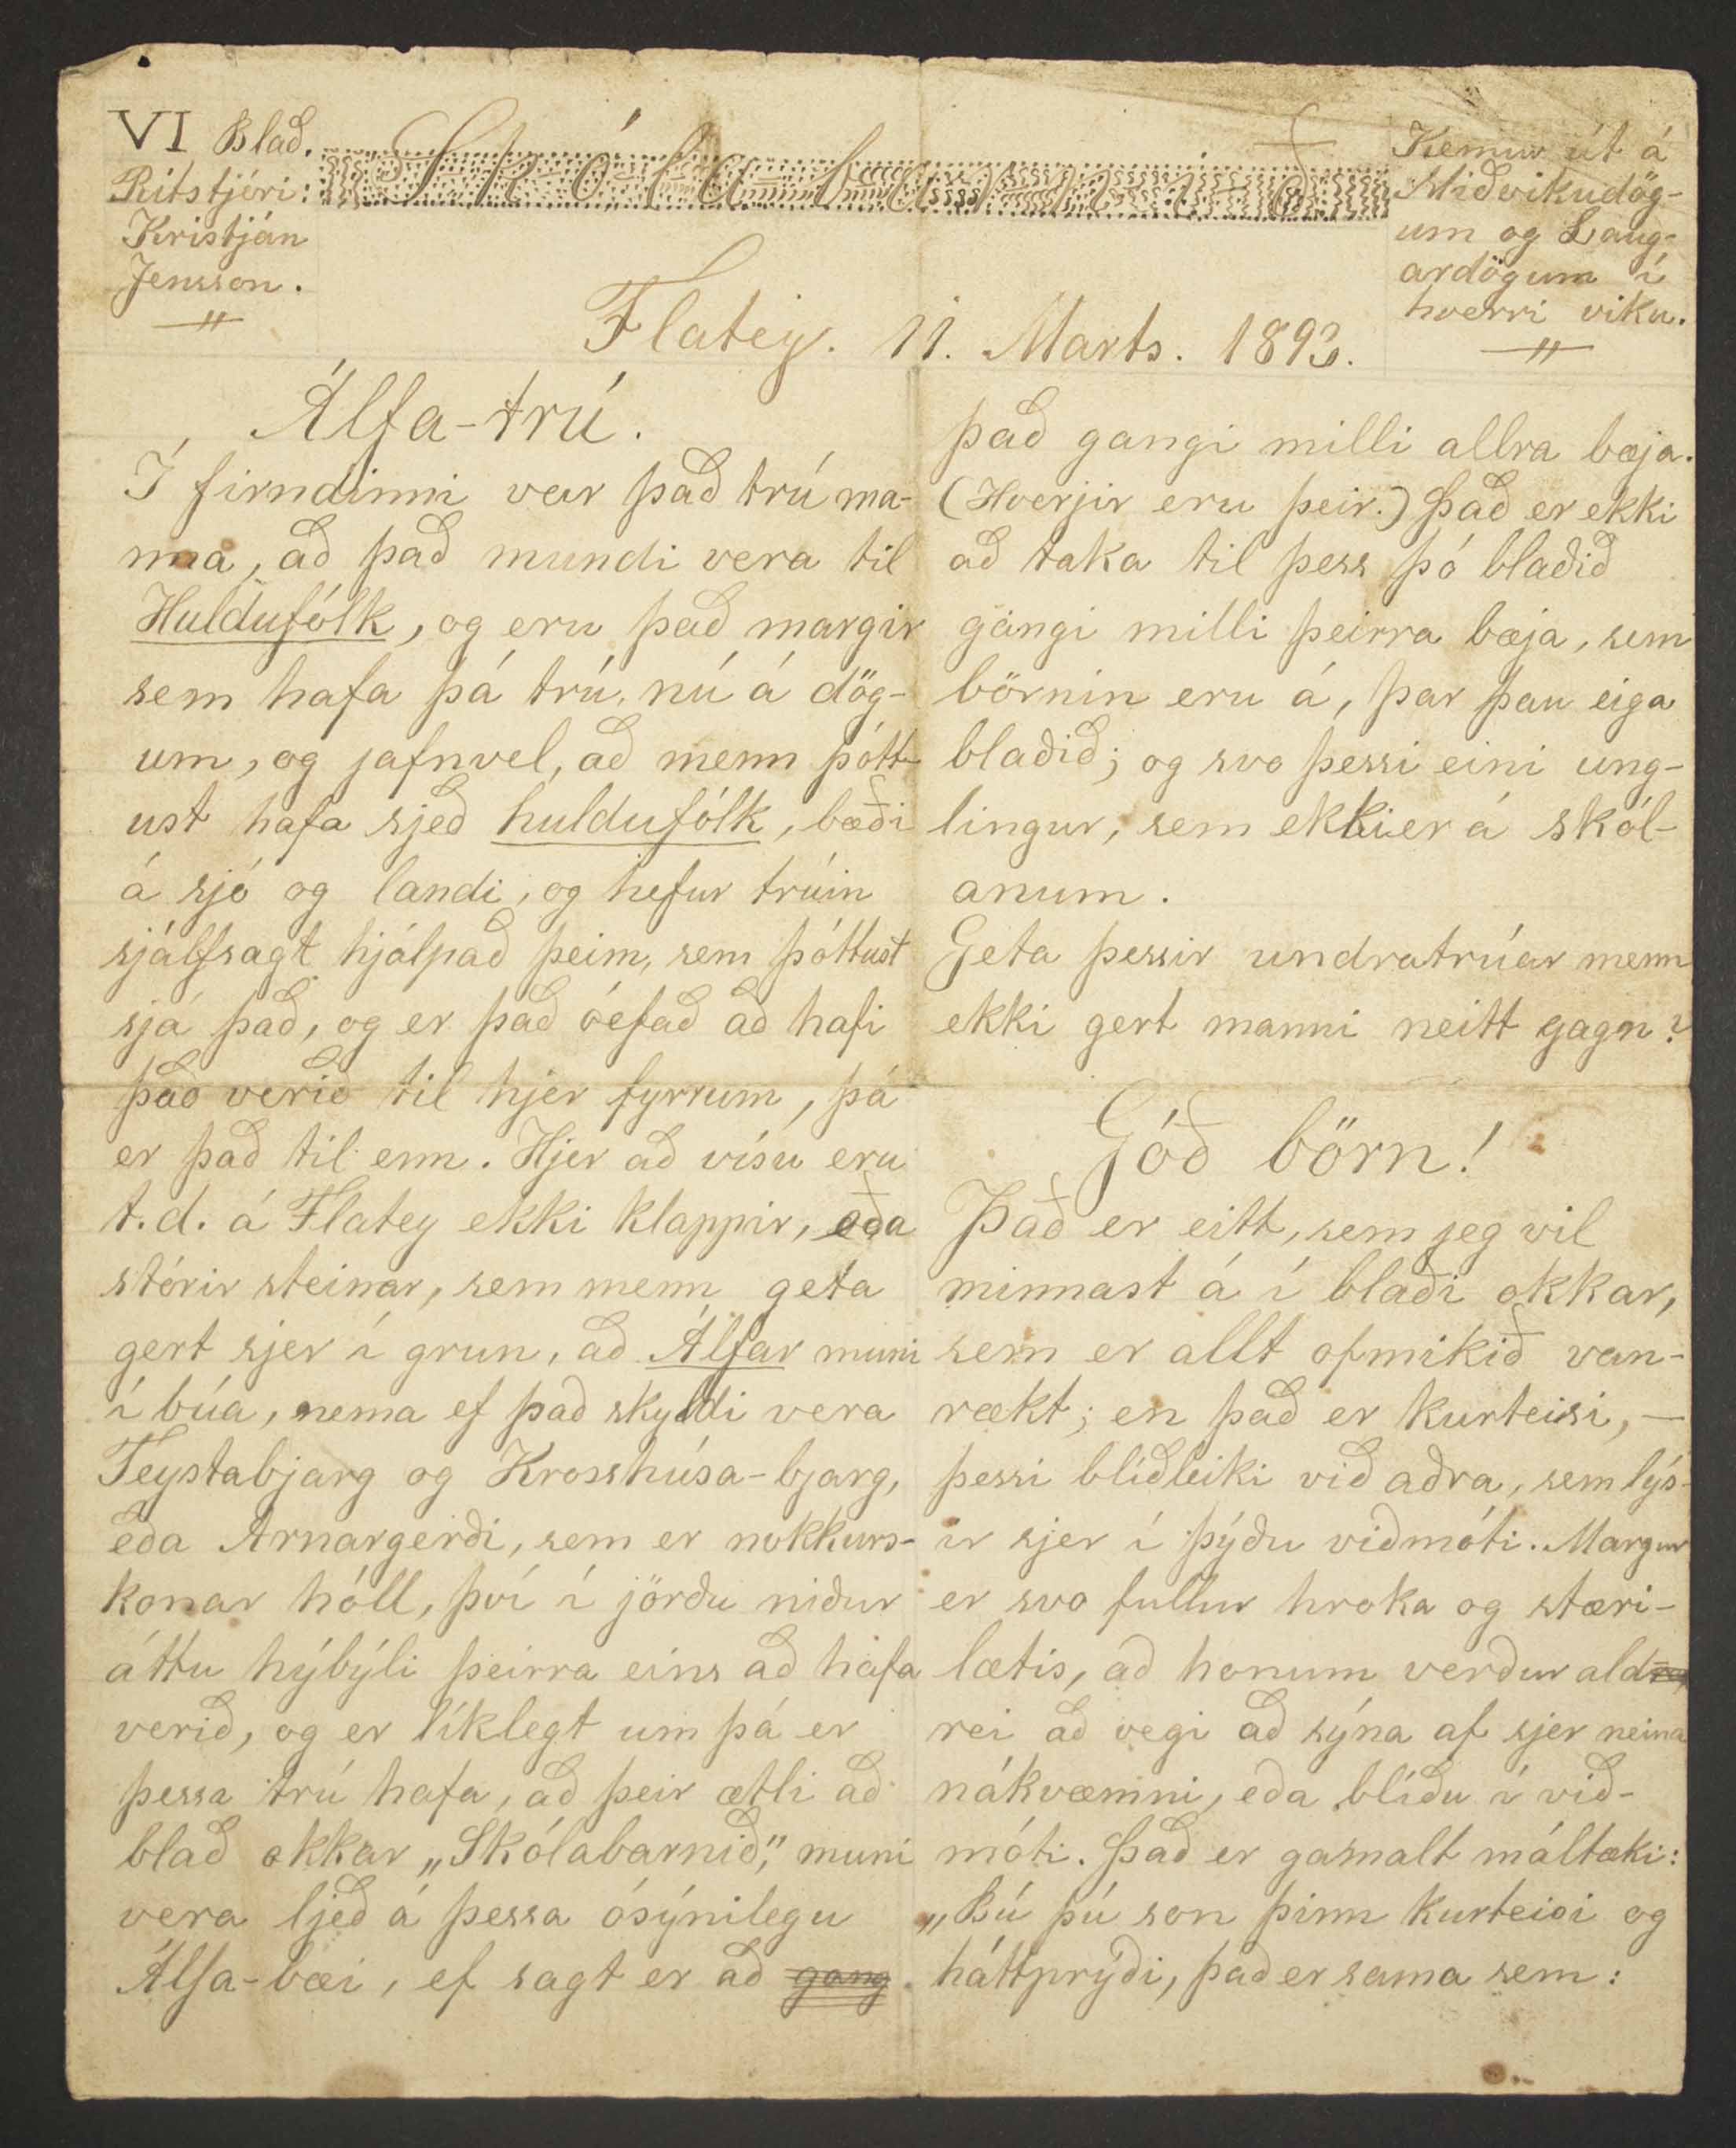 VI Blað.
Ritstjóri:
Kristján
Jensson.
Skólabarnið
Kemur út á
Miðvikudög-
um og Laug-
ardögum í
hverri viku.
Flatey. 11. Marts. 1893.
Álfa-trú.
Í firndinni var það trú ma-
nna, að það mundi vera til
Huldufólk, og eru það margir
sem hafa þá trú, nú á dög-
um, og jafnvel, að menn þótt-
ust hafa sjeð huldufólk, bæði
á sjó og landi, og hefur trúin
sjálfsagt hjálpað þeim, sem þóttust
sjá það, og er það óefað að hafi
það verið til hjer fyrrum, þá
er það til enn. Hjer að vísu eru
t.d. á Flatey ekki klappir, eða
stórir steinar, sem menn geta
gert sjer í grun, að Álfar muni
í búa, nema ef það skyldi vera
Teystabjarg og Krosshúsa-bjarg,
eða Arnargerði, sem er nokkurs-
konar hóll, því í jörðu niður
áttu hýbýli þeirra eins að hafa
verið, og er líklegt um þá er
þessa trú hafa, að þeir ætli að
blað okkar „Skólabarnið", muni
vera ljeð á þessa ósýnilegu
Álfa-bæi, ef sagt er að gang
það gangi milli allra bæja.
(Hverjir eru þeir.) Það er ekki
að taka til þess þó blaðið
gangi milli þeirra bæja, sem
börnin eru á, þar þau eiga
blaðið; og svo þessi eini ung-
lingur, sem ekki er á skól-
anum.
Geta þessir undratrúar menn
ekki gert manni neitt gagn?
Góð börn!
Það er eitt, sem jeg vil
minnast á í blaði okkar,
sem er allt ofmikið van-
rækt; en það er kurteisi, —
þessi blíðleiki við aðra, sem lýs-
ir sjer í þýðu viðmóti. Margur
er svo fullur hroka og stæri-
lætis, að honum verður ald
rei að vegi að sýna af sjer neina
nákvæmni, eða blíðu í við-
móti. Það er gamalt máltæki:
„Bú þú son þinn kurteisi og
háttprýði, það er sama sem: